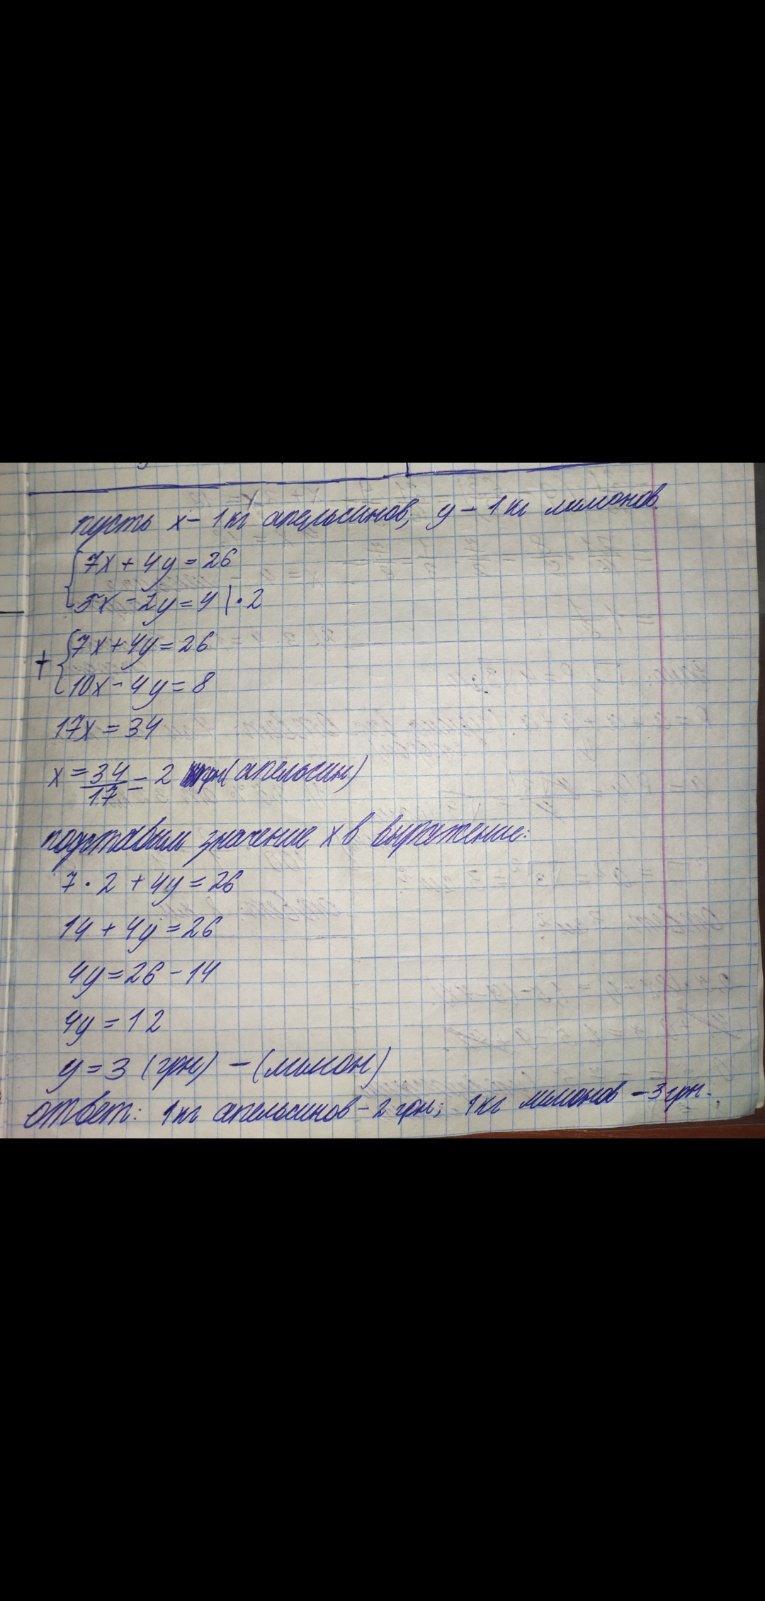 пусть x - 1 кг апельсинов, y - 1 кг лимонов.
7x + 4y = 26
5x - 2y = 4 | · 2
+ 7x + 4y = 26
10x - 4y = 8
17x = 34
x = 34/17 = 2 грн (апельсин)
подставим значение x в выражение:
7 · 2 + 4y = 26
14 + 4y = 26
4y = 26 - 14
4y = 12
y = 3 (грн) - (лимон)
ответ: 1 кг апельсинов - 2 грн; 1 кг лимонов - 3 грн.